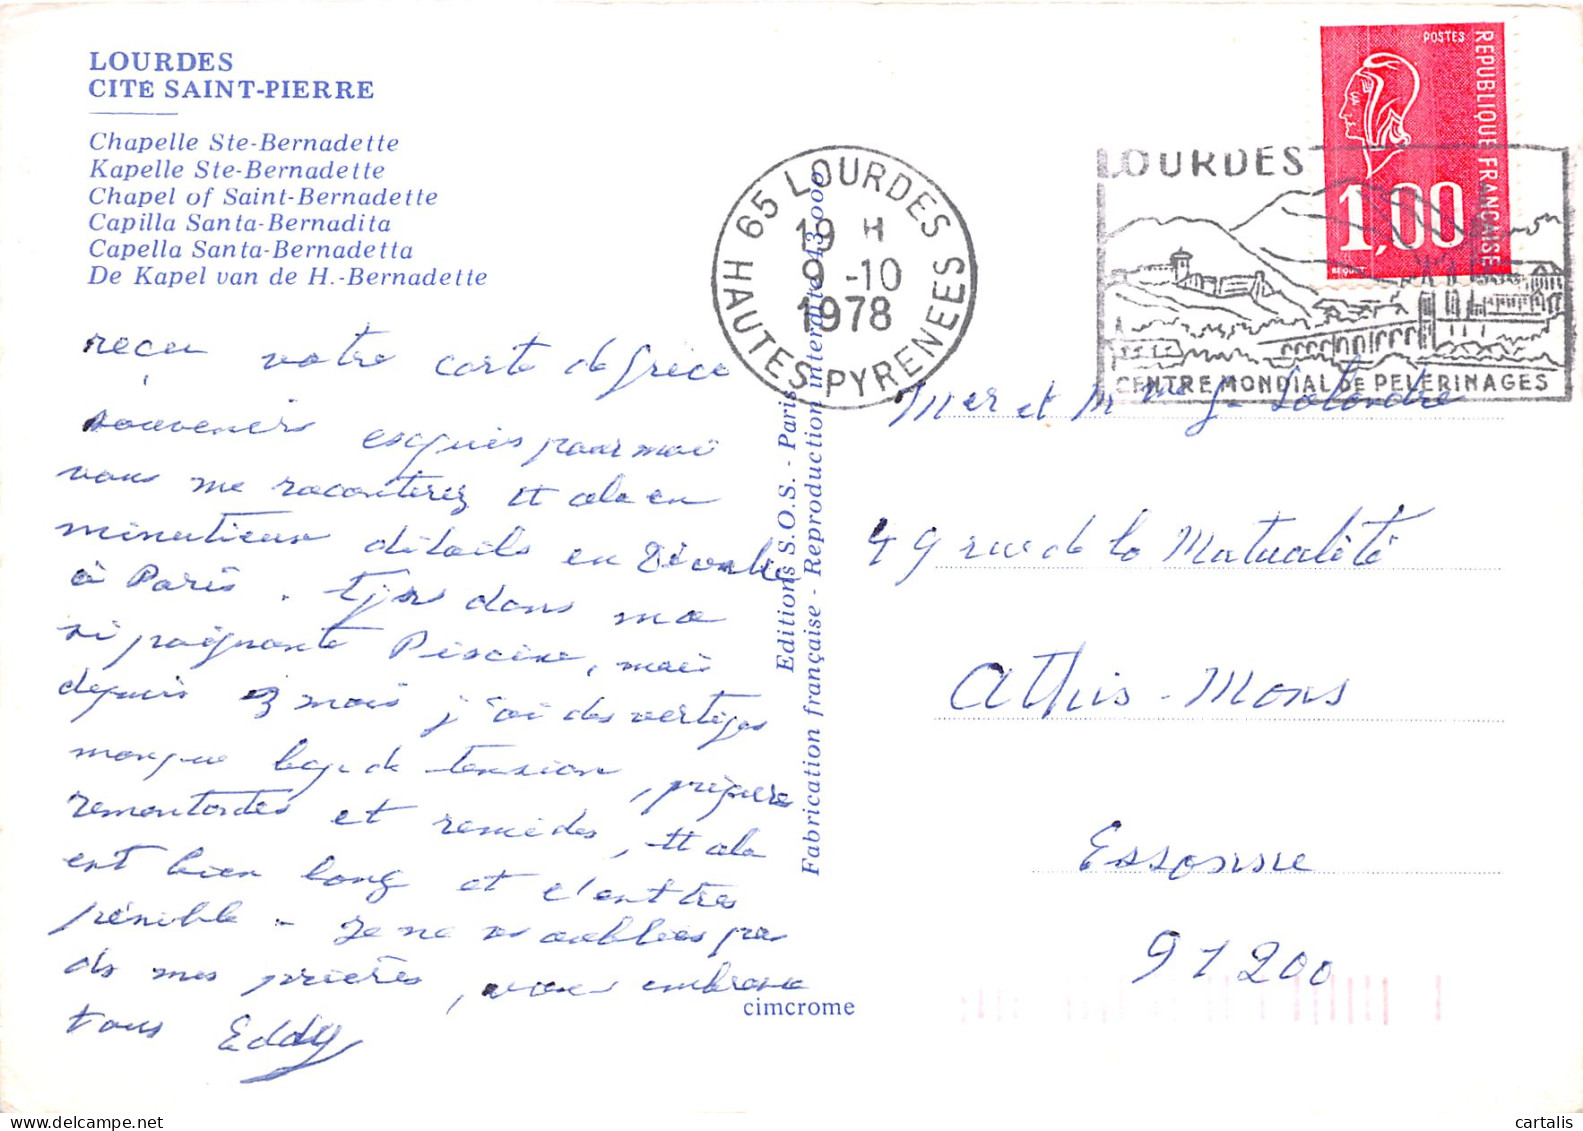 LOURDES
CITÉ SAINT-PIERRE
Chapelle Ste-Bernadette
Kapelle Ste-Bernadette
Chapel of Saint-Bernadette
Capilla Santa-Bernadita
Capella Santa-Bernadetta
De Kapel van de H.-Bernadette
reçu votre carte de Grèce
souvenirs exquis pour moi
vous me raconterez tt cela en
minutieux détails en
à Paris. Tjrs dans ma
si poignante Piscine, mais
depuis 3 mois j'ai des vertiges
manque de tension, piqures
remontantes et remèdes, tt cela
est bien long et c'est très
pénible - Je ne vs oublies pas
ds mes prières, vous embrasse
tous Eddy
Editions S.O.S. - Paris
Fabrication française - Reproduction interdite 43.000
cimcrome
65 LOURDES
19 H
9-10
1978
HAUTES PYRENEES
LOURDES
CENTRE MONDIAL DE PELERINAGES
POSTES
REPUBLIQUE FRANÇAISE
1,00
BEQUET
Mer et Mme
49 rue de la Mutualité
Athis-Mons
Essonne
91200
delcampe.net
cartalis